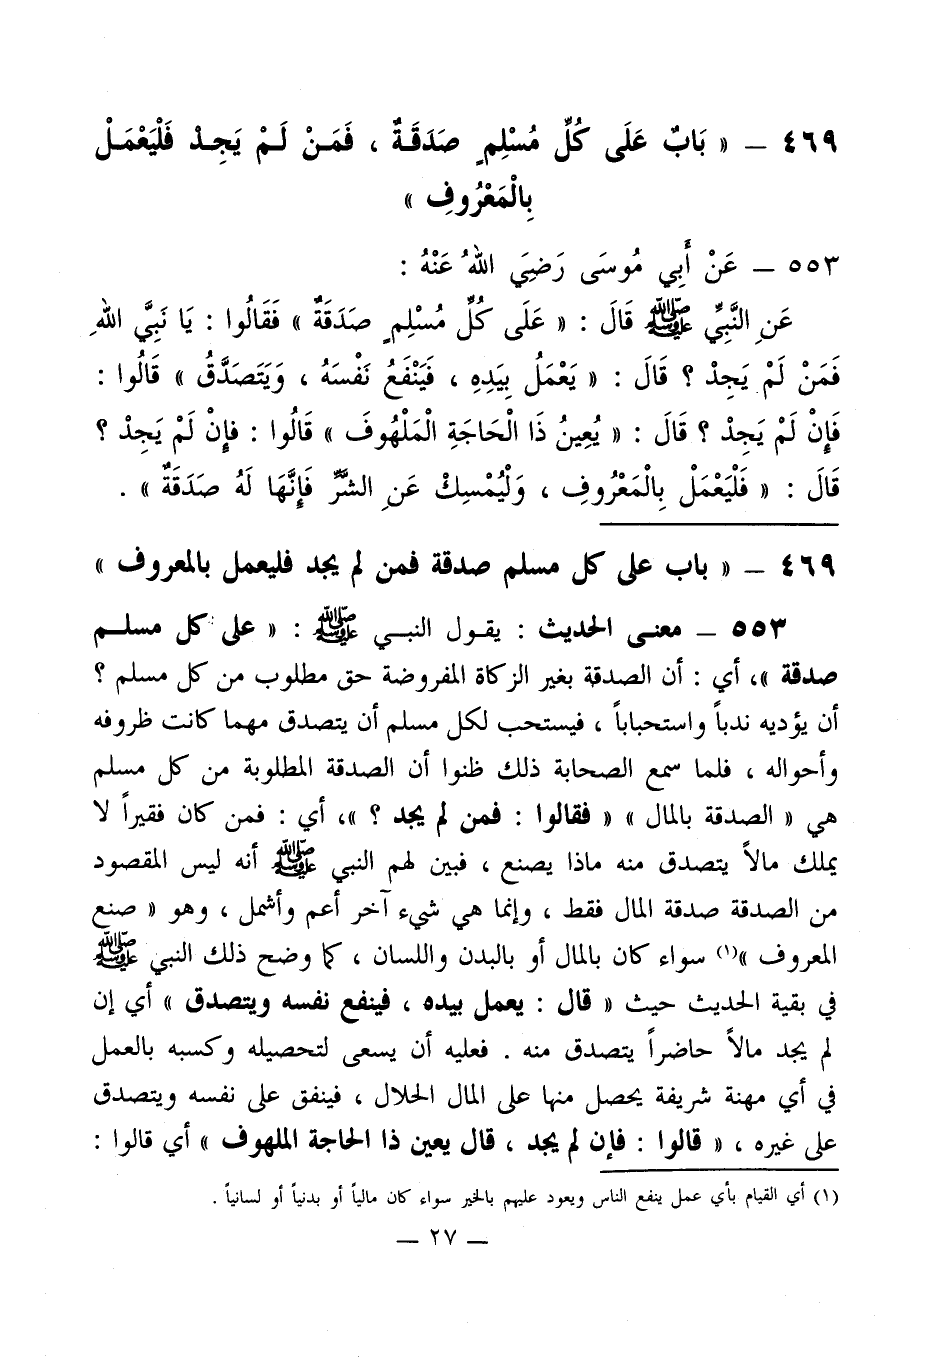 ٤٦٩ – « بَابٌ عَلَى كُلِّ مُسْلِمٍ صَدَقَةٌ ، فَمَنْ لَمْ يَجِدْ فَلْيَعْمَلْ
بِالْمَعْرُوفِ »
٥٥٣ – عَنْ أَبِي مُوسَى رَضِيَ اللهُ عَنْهُ :
عَنِ النَّبِيِّ ﷺ قَالَ : « عَلَى كُلِّ مُسْلِمٍ صَدَقَةٌ » فَقَالُوا : يَا نَبِيَّ اللهِ
فَمَنْ لَمْ يَجِدْ ؟ قَالَ : « يَعْمَلُ بِيَدِهِ ، فَيَنْفَعُ نَفْسَهُ ، وَيَتَصَدَّقُ » قَالُوا :
فَإِنْ لَمْ يَجِدْ ؟ قَالَ : « يُعِينُ ذَا الْحَاجَةِ الْمَلْهُوفَ » قَالُوا : فإِنْ لَمْ يَجِدْ ؟
قَالَ : « فَلْيَعْمَلْ بِالْمَعْرُوفِ ، وَلْيُمْسِكْ عَنِ الشَّرِّ فَإِنَّهَا لَهُ صَدَقَةٌ » .
٤٦٩ – « باب على كل مسلم صدقة فمن لم يجد فليعمل بالمعروف »
٥٥٣ – معنى الحديث : يقول النبي ﷺ : « على كل مسلم
صدقة »، أي : أن الصدقة بغير الزكاة المفروضة حق مطلوب من كل مسلم ؟
أن يؤديه ندباً واستحباباً ، فيستحب لكل مسلم أن يتصدق مهما كانت ظروفه
وأحواله ، فلما سمع الصحابة ذلك ظنوا أن الصدقة المطلوبة من كل مسلم
هي « الصدقة بالمال » « فقالوا : فمن لم يجد ؟ »، أي : فمن كان فقيراً لا
يملك مالاً يتصدق منه ماذا يصنع ، فبين لهم النبي ﷺ أنه ليس المقصود
من الصدقة صدقة المال فقط ، وإنما هي شيء آخر أعم وأشمل ، وهو « صنع
المعروف »(١) سواء كان بالمال أو بالبدن واللسان ، كما وضح ذلك النبي ﷺ
في بقية الحديث حيث « قال : يعمل بيده ، فينفع نفسه ويتصدق » أي إن
لم يجد مالاً حاضراً يتصدق منه . فعليه أن يسعى لتحصيله وكسبه بالعمل
في أي مهنة شريفة يحصل منها على المال الحلال ، فينفق على نفسه ويتصدق
على غيره ، « قالوا : فإن لم يجد ، قال يعين ذا الحاجة الملهوف » أي قالوا :
(١) أي القيام بأي عمل ينفع الناس ويعود عليهم بالخير سواء كان مالياً أو بدنياً أو لسانياً .
– ٢٧ –